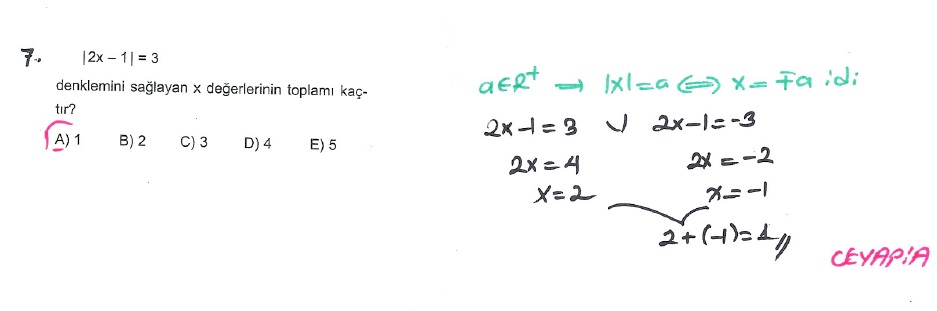 7. |2x – 1| = 3
denklemini sağlayan x değerlerinin toplamı kaç-
tır?
A) 1 B) 2 C) 3 D) 4 E) 5
a∈R⁺ → |x|=a ⟺ x=∓a idi
2x-1=3 ∨ 2x-1=-3
2x=4 2x=-2
x=2 x=-1
2+(-1)=1//
CEVAP:A